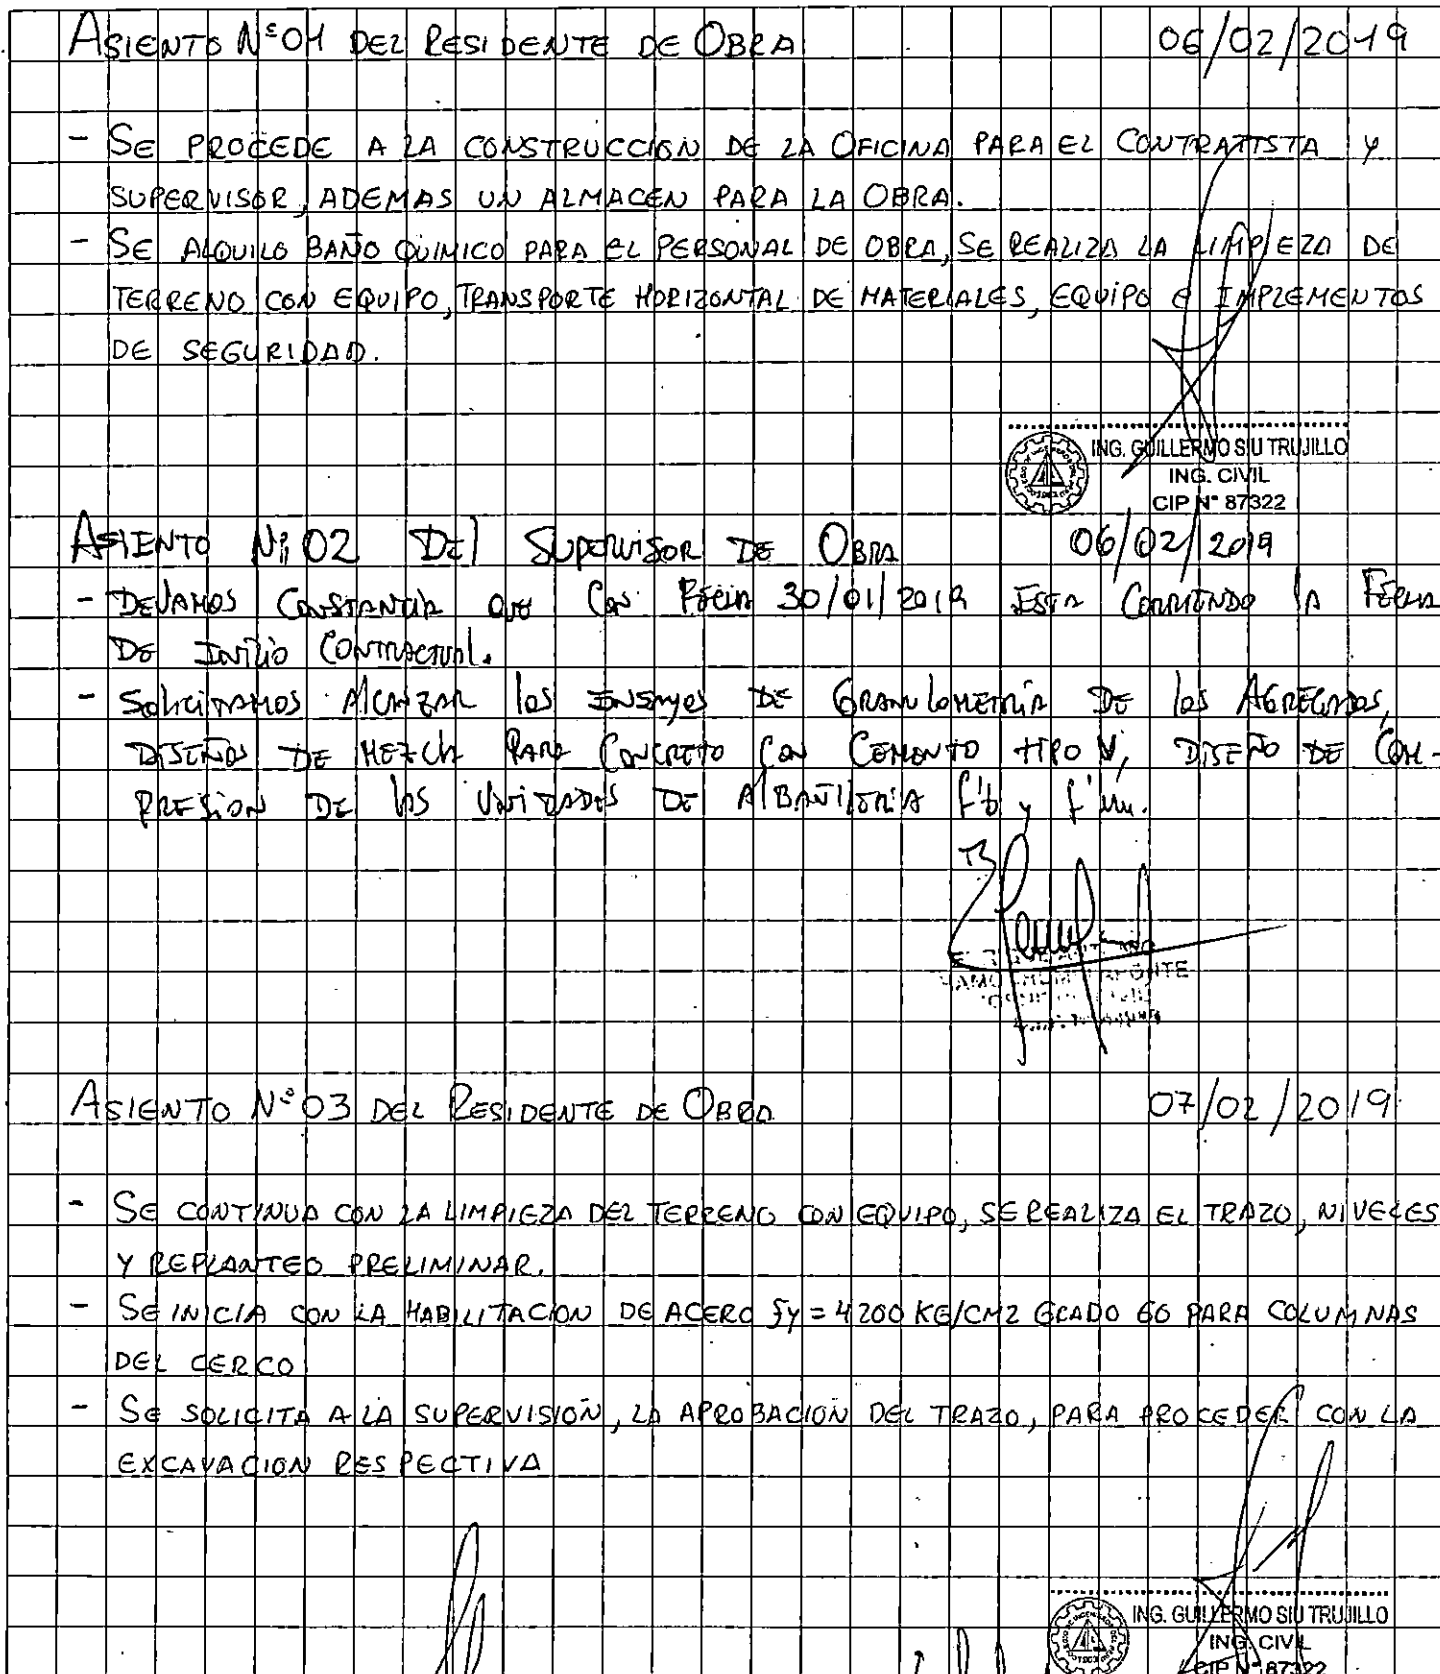 ASIENTO Nº 01 DEL RESIDENTE DE OBRA 06/02/2019
- SE PROCEDE A LA CONSTRUCCION DE LA OFICINA PARA EL CONTRATISTA Y
SUPERVISOR, ADEMAS UN ALMACEN PARA LA OBRA.
- SE ALQUILO BAÑO QUIMICO PARA EL PERSONAL DE OBRA, SE REALIZA LA LIMPIEZA DE
TERRENO CON EQUIPO, TRANSPORTE HORIZONTAL DE MATERIALES, EQUIPO E IMPLEMENTOS
DE SEGURIDAD.
ING. GUILLERMO SIU TRUJILLO
ING. CIVIL
CIP Nº 87322
ASIENTO Nº 02 DEL SUPERVISOR DE OBRA 06/02/2019
- DEJAMOS CONSTANCIA QUE CON FECHA 30/01/2019 ESTA CORRIENDO LA FECHA
DE INICIO CONTRACTUAL.
- SOLICITAMOS ALCANZAR LOS ENSAYOS DE GRANULOMETRÍA DE LOS AGREGADOS,
DISEÑOS DE MEZCLA PARA CONCRETO CON CEMENTO TIPO V, DISEÑO DE COM-
PRESION DE LAS UNIDADES DE ALBAÑILERIA f'b y f'm.
ASIENTO Nº 03 DEL RESIDENTE DE OBRA 07/02/2019
- SE CONTINUA CON LA LIMPIEZA DEL TERRENO CON EQUIPO, SE REALIZA EL TRAZO, NIVELES
Y REPLANTEO PRELIMINAR.
- SE INICIA CON LA HABILITACION DE ACERO fy = 4200 KG/CM2 GRADO 60 PARA COLUMNAS
DEL CERCO
- SE SOLICITA A LA SUPERVISIÓN, LA APROBACION DEL TRAZO, PARA PROCEDER CON LA
EXCAVACION RESPECTIVA
ING. GUILLERMO SIU TRUJILLO
ING. CIVIL
CIP Nº 87322